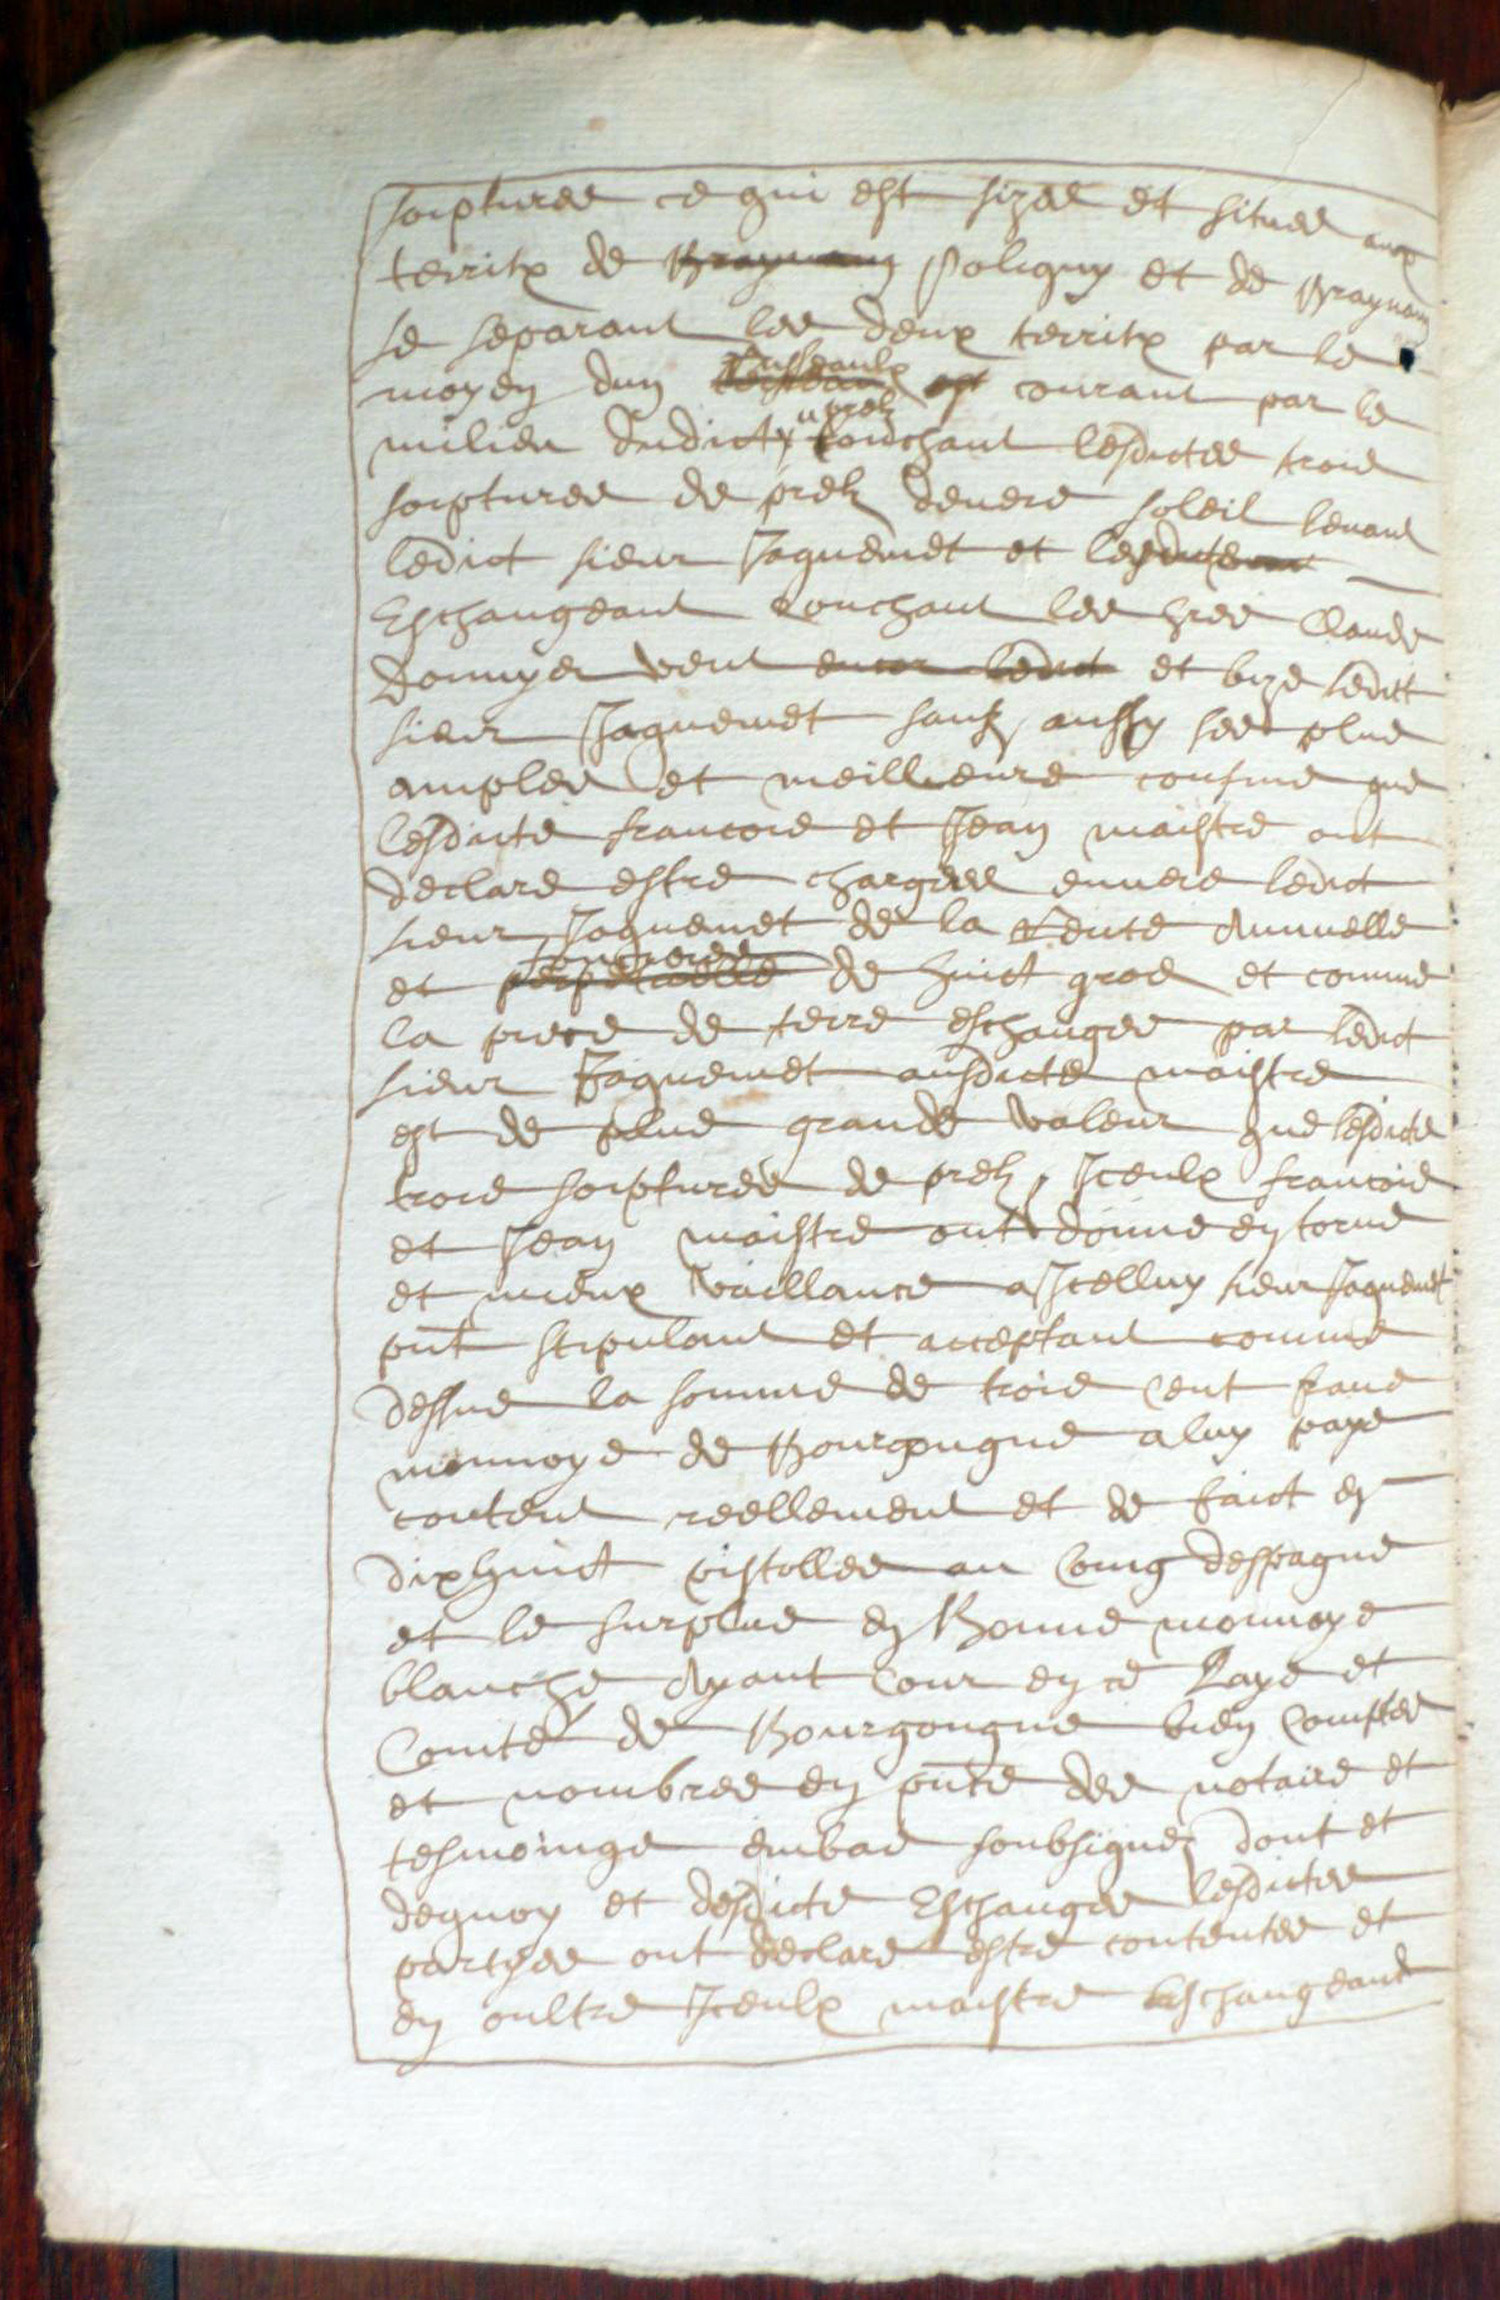 soiptures ce qui est sizes et situes aux
territx de Braynans Poligny et de Braynans
se separant les deux territx par le
moyen dun ruisseaulx est courant par le
milieu dudict prelz touchant lesdictes trois
soiptures de prelz devers soleil levant
ledict sieur Jaquemet et lesdicts
Eschangeant couchant les hres Claude
Dounyer vent encor ledict et bize ledict
sieur Jaquemet sauf aussy ses plus
amples et meilleurs confins que
lesdicts francois et Jean maistre ont
declare estre charges envers ledict
sieur Jaquemet de la Rente Annuelle
et fonciere perpetuelle de huict gros et comme
la piece de terre eschangee par ledict
sieur Jaquemet ausdicts maistre
est de plus grande valeur que lesdicts
trois soiptures de prelz, Iceulx francois
et Jean maistre ont donne en torne
et mieux vaillance a Icelluy sieur Jaquemet
pnt stipulant et acceptant comme
dessus la somme de trois cent frans
monnoye de Bourgougne a luy paye
content reellement et de faict en
dixhuict pistolles au coing despagne
et le surplus en Bonne monnoye
blanche Ayant Cour en ce Pays et
Comté de Bourgougne bien Comptes
et nombres en pnce des notaire et
tesmoings embas soubsignez dont et
dequoy et desdicts Eschanges lesdictes
partyes ont declare estre contentes et
en oultre Iceulx maistre Eschangeans